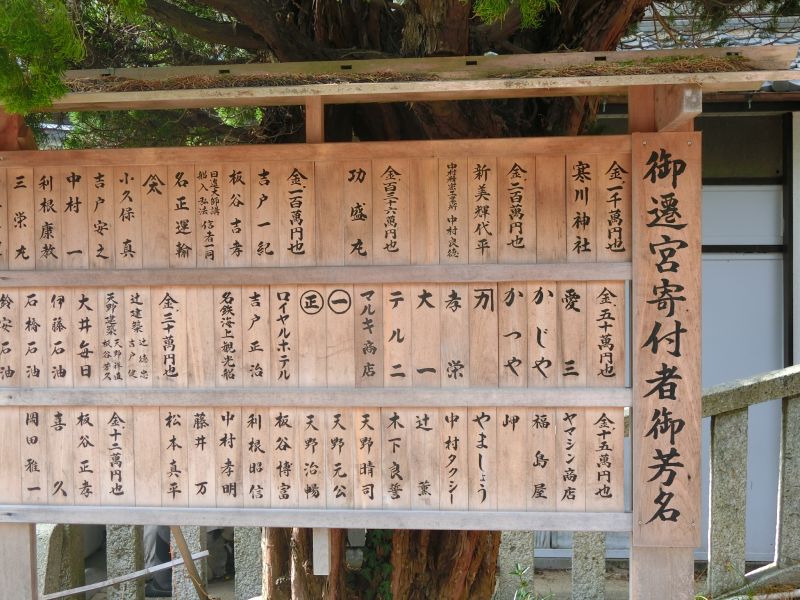 御遷宮寄付者御芳名
金一千萬円也
寒川神社
金二百萬円也
新美輝代平
中村精密工業所 中村良徳
金百三十六萬円也
功盛丸
金一百萬円也
吉戸一紀
板谷吉孝
日遠大師講
船入弘法 信者一同
名正運輸
小久保真
吉戸安之
中村一
利根康教
三栄丸
金五十萬円也
愛三
かじや
かつや
万
孝栄
大一
テル二
マルキ商店
一
正
ロイヤルホテル
吉戸正治
名鉄海上観光船
金三十萬円也
辻建築 辻徳忠 吉戸健
天野塗築 天野祥直 板谷芳久
大井毎日
伊藤石油
石橋石油
鈴安石油
金十五萬円也
ヤマシン商店
福島屋
岬
やましょう
中村タクシー
辻薫
木下良誓
天野時司
天野元公
天野治暢
板谷博富
利根昭信
中村孝明
藤井万
松本真平
金十二萬円也
板谷正孝
喜久
岡田雅一